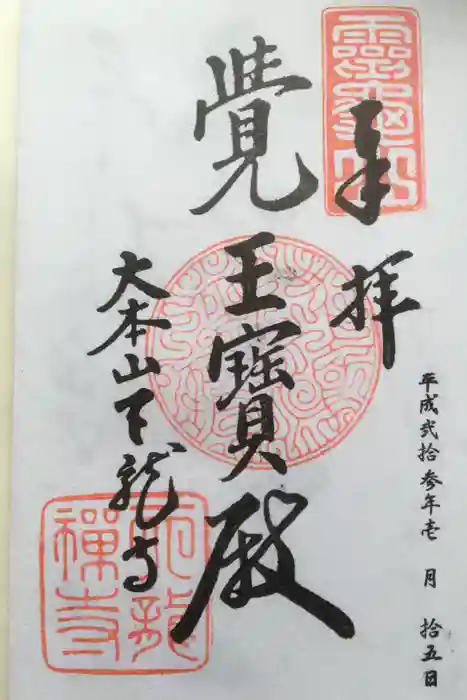 靈龜山
奉拝
平成弐拾参年壱月拾五日
覺王寶殿
大本山天龍寺
天龍
禪寺